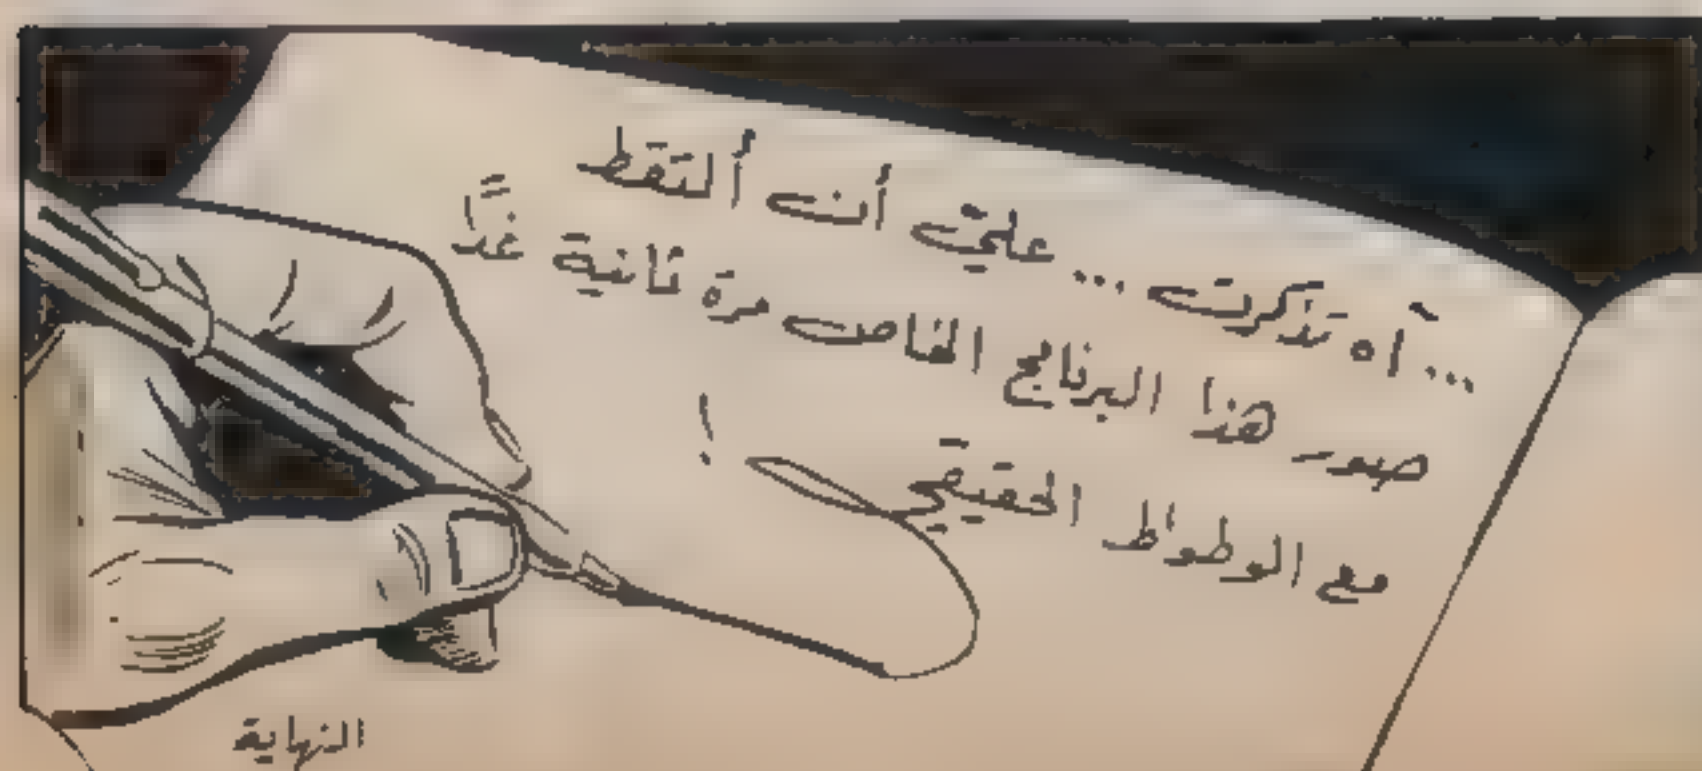 ... آه تذكرت ... عليّ أن ألتقط
صور هذا البرنامج الخاص مرة ثانية غدًا
مع الوطواط الحقيقي !
النهاية